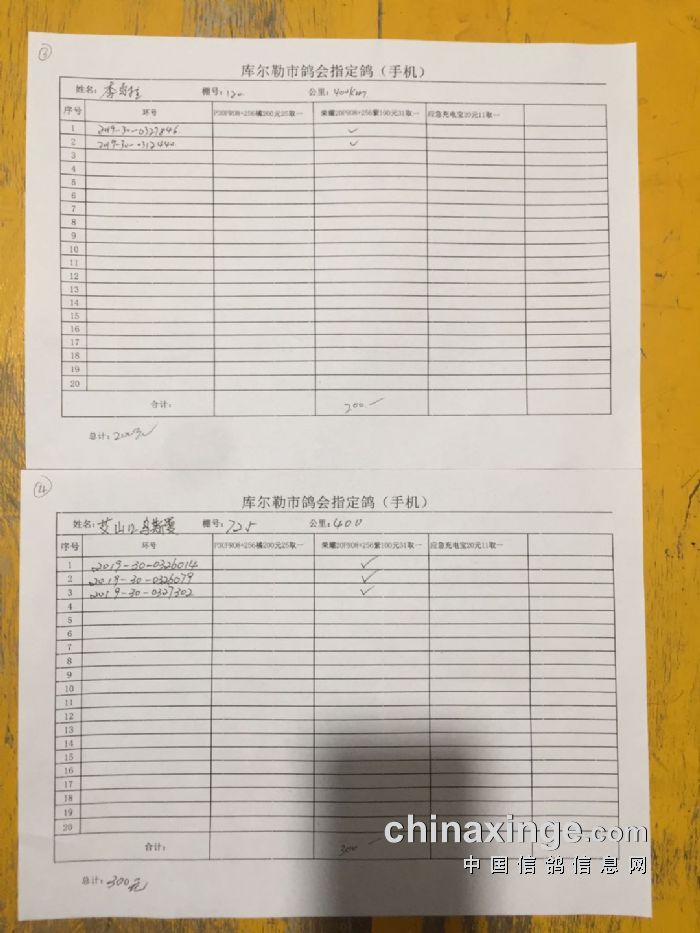 ③
库尔勒市鸽会指定鸽（手机）
姓名： 棚号：120 公里：400km
序号 环号 P30PRO8+256橘200元25取一 荣耀20PRO8+256紫100元31取一 应急充电宝20元11取一
1 2019-30-0327846 ✓
2 2019-30-0312440 ✓
3
4
5
6
7
8
9
10
11
12
13
14
15
16
17
18
19
20
合计： 200
总计：200元
④
库尔勒市鸽会指定鸽（手机）
姓名：艾山江 乌斯曼 棚号：725 公里：400
序号 环号 P30PRO8+256橘200元25取一 荣耀20PRO8+256紫100元31取一 应急充电宝20元11取一
1 2019-30-0326014 ✓
2 2019-30-0326079 ✓
3 2019-30-0327302 ✓
4
5
6
7
8
9
10
11
12
13
14
15
16
17
18
19
20
合计： 300
总计：300元
chinaxinge.com
中国信鸽信息网